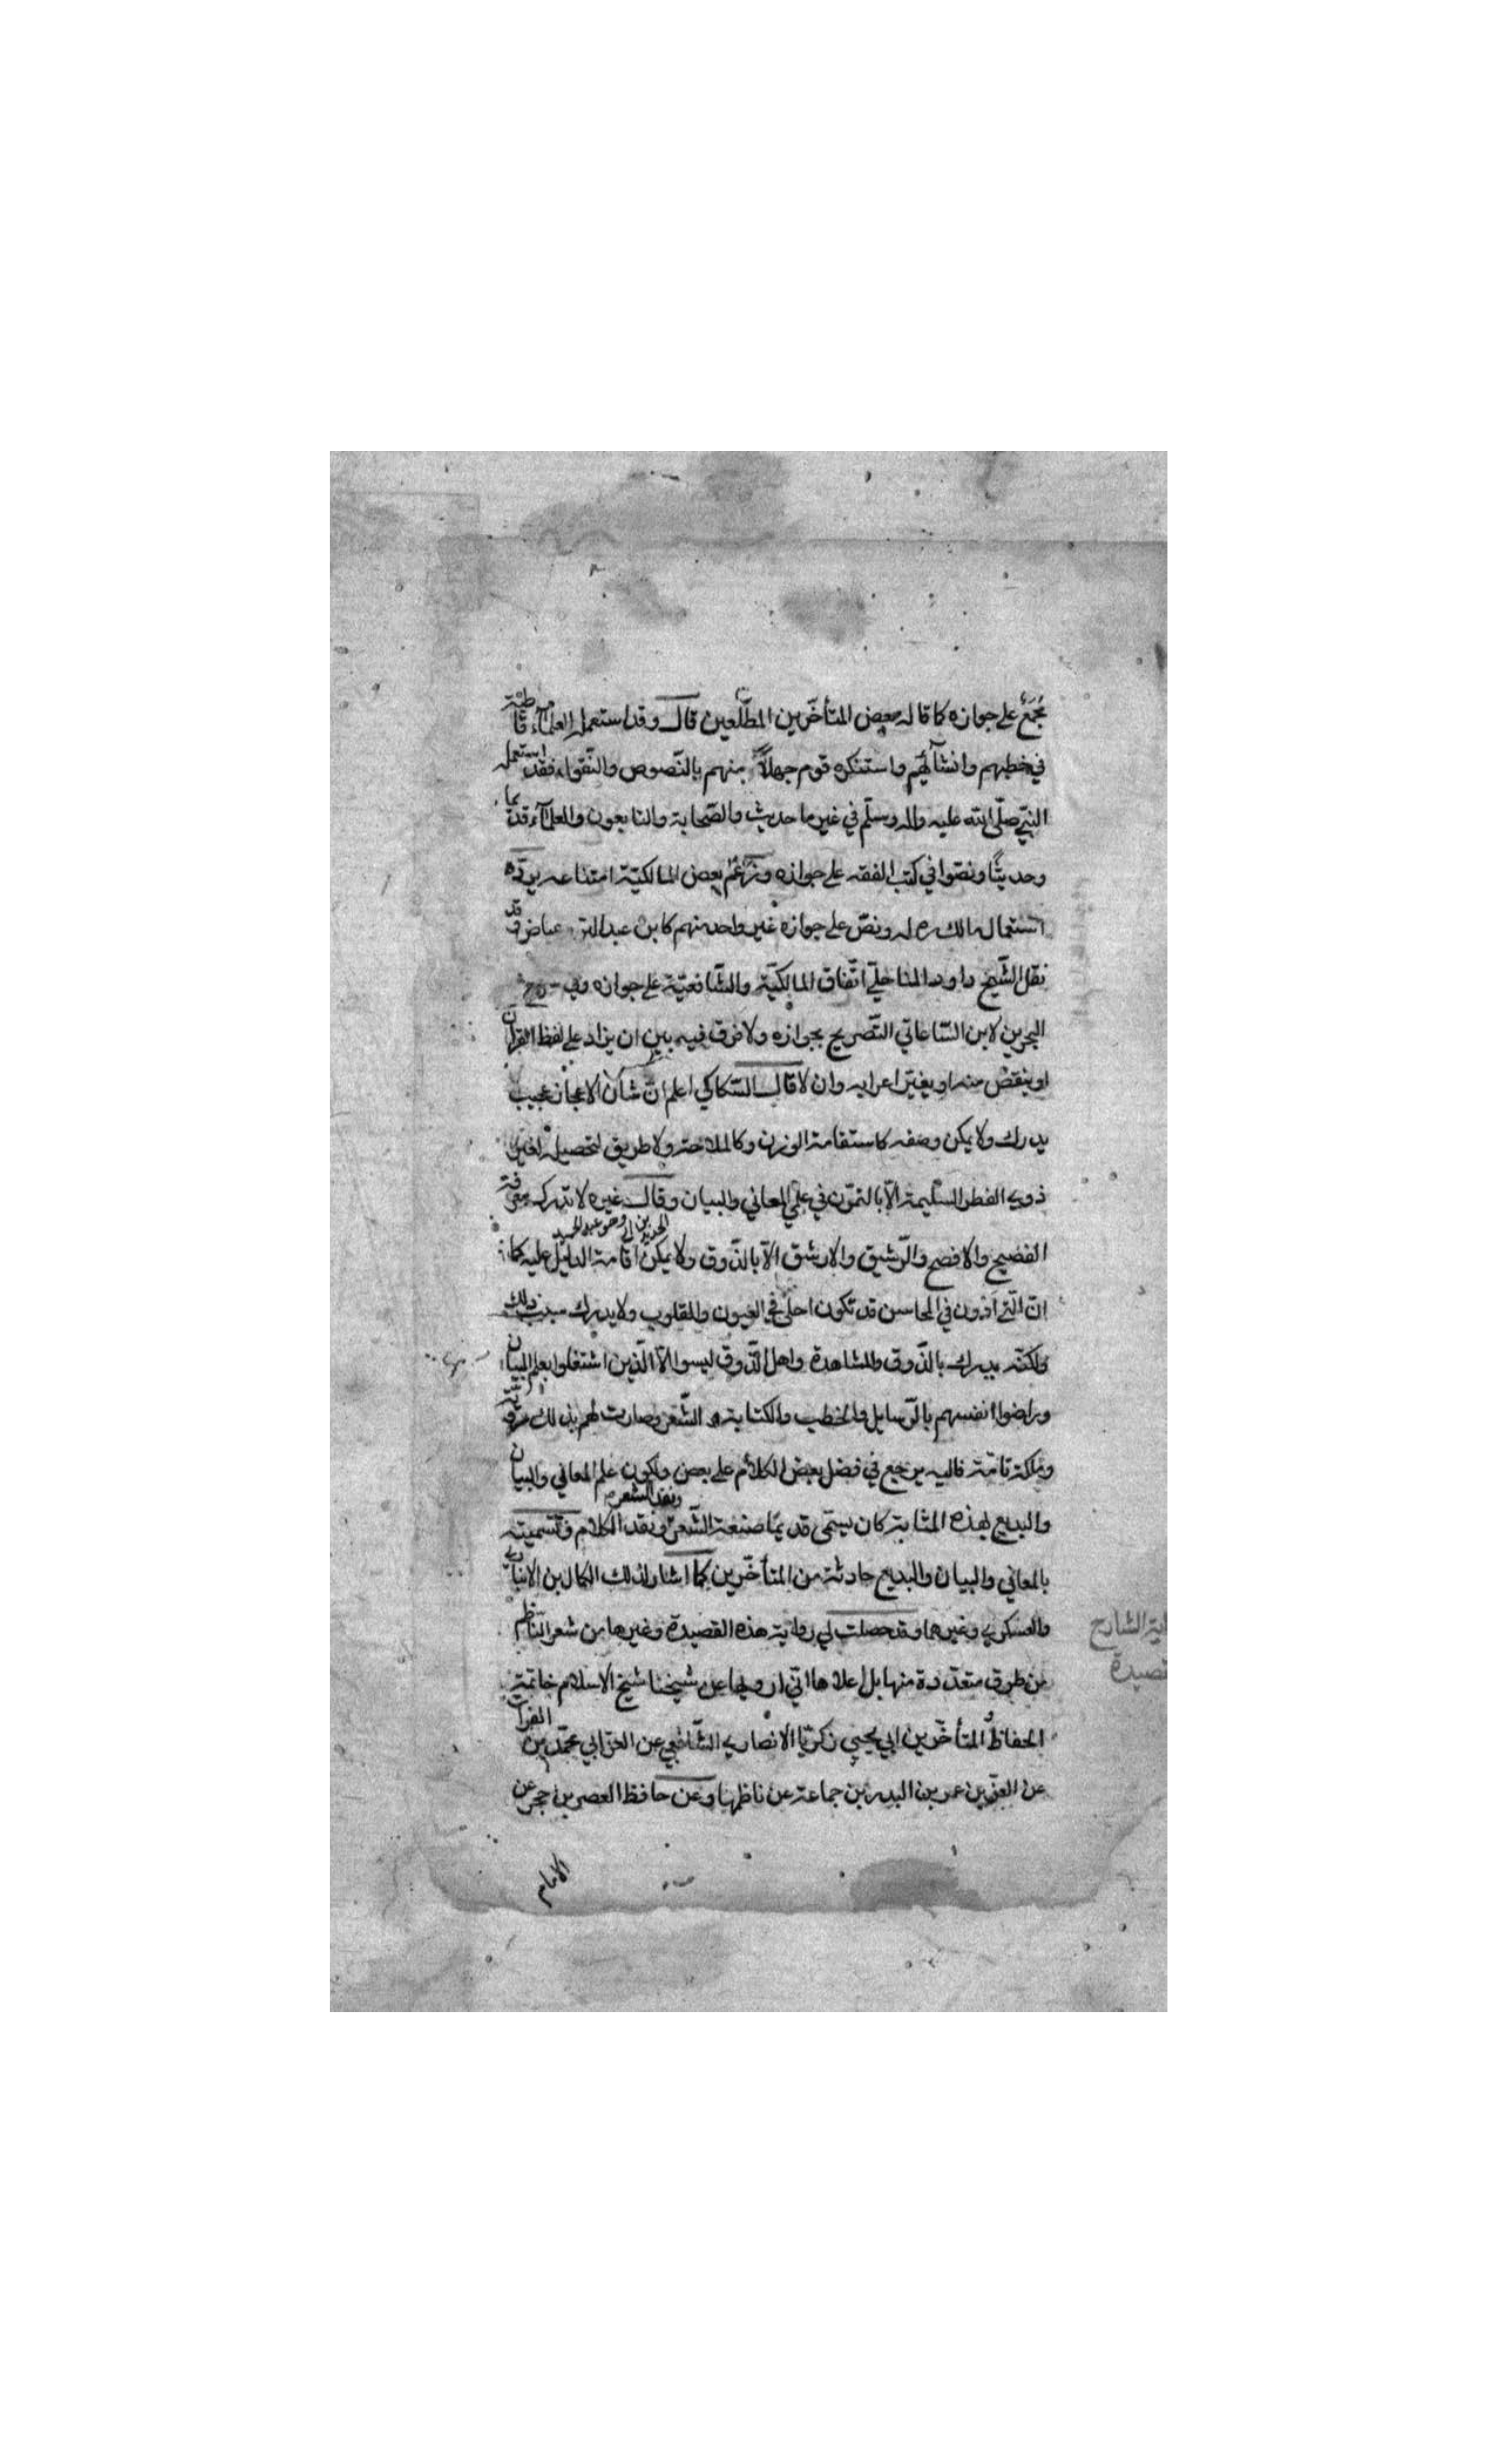 مُجمَع على جوازه كما قاله بعض المتأخّرين المطّلعين قال وقد استعمله العلمآء قاطبة
في خطبهم وانشآئهم واستنكره قوم جهلاً منهم بالنّصوص والنّقول فقد استعمله
النبيّ صلّى الله عليه واله وسلّم في غير ما حديث والصّحابة والتابعون والعلمآء قديما
وحديثًا ونصّوا في كتب الفقه على جوازه وزعم بعض المالكيّة امتناعه يردّه
استعمال مالك له ونصّ على جوازه غير واحد منهم كابن عبد البرّ عياض وقد
نقل الشّيخ داود المناخليّ اتّفاق المالكيّة والشّافعيّة على جوازه وفي
البحرين لابن السّاعاتي التّصريح بجوازه ولا فرق فيه بين ان يزاد على لفظ القرآن
او ينقص منه او يغيّر اعرابه وان لا قال السّكاكي اعلم انّ شأن الاعجاز عجيب
يدرك ولا يمكن وصفه كاستقامة الوزن وكالملاحة ولا طريق لتحصيله لغير
ذوي الفطر السّليمة الّا بالتمرّن في علمي المعاني والبيان وقال غيره لا تدرك معرفة
الفصيح والافصح والرّشيق والارشق الّا بالذّوق ولا يمكن اقامة الدليل عليه كما
وهو عبد الحميد بن ابي الحديد
انّ الّتي دون في المحاسن قد تكون احلى في العيون والقلوب ولا يدرك سبب ذلك
ولكنّه يدرك بالذّوق والمشاهدة واهل الذّوق ليسوا الّا الّذين اشتغلوا بعلم البيان
وراضوا انفسهم بالرّسايل والخطب والكتابة والشّعر وصارت لهم بذلك دربة
وملكة تامّة فاليه يرجع في فضل بعض الكلام على بعض ولكون علم المعاني والبيان
والبديع بهذه المثابة كان يسمّى قديمًا صنعة الشّعر ونقد الكلام وتسميته
ونقد الشعر
بالمعاني والبيان والبديع حادثة من المتأخّرين كما اشار لذلك الكمال بن الانباري
والعسكري وغيرهما وقد حصلت لي رواية هذه القصيدة وغيرها من شعر النّاظم
من طرق متعدّدة منها بل اعلاها انّي ارويها عن شيخنا شيخ الاسلام خاتمة
الحفاظ المتأخّرين ابي يحيى زكريّا الانصاري الشّافعي عن العزّ ابي محمّد بن الفرات
عن العزّ بن عمر بن البدر بن جماعة عن ناظمها وعن حافظ العصر بن حجر عن
الامام
الشارح